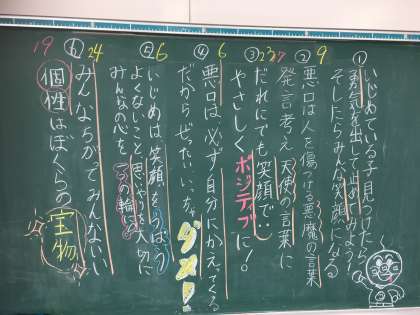 ①いじめている子見つけたら
勇気を出して止めてみよう!
そしたらみんな笑顔になる
9
②悪口は人を傷つける悪魔の言葉
発言考え天使の言葉に
23
27
③だれにでも笑顔で
やさしくポジティブに!
6
④悪口は必ず自分にかえってくる
だからぜったいいっちゃダメ!
6
⑤いじめは笑顔をうばう
よくないこと思いやりを大切に
みんなの心を一つの輪に
24
⑥みんなちがってみんないい
19
個性はぼくらの宝物